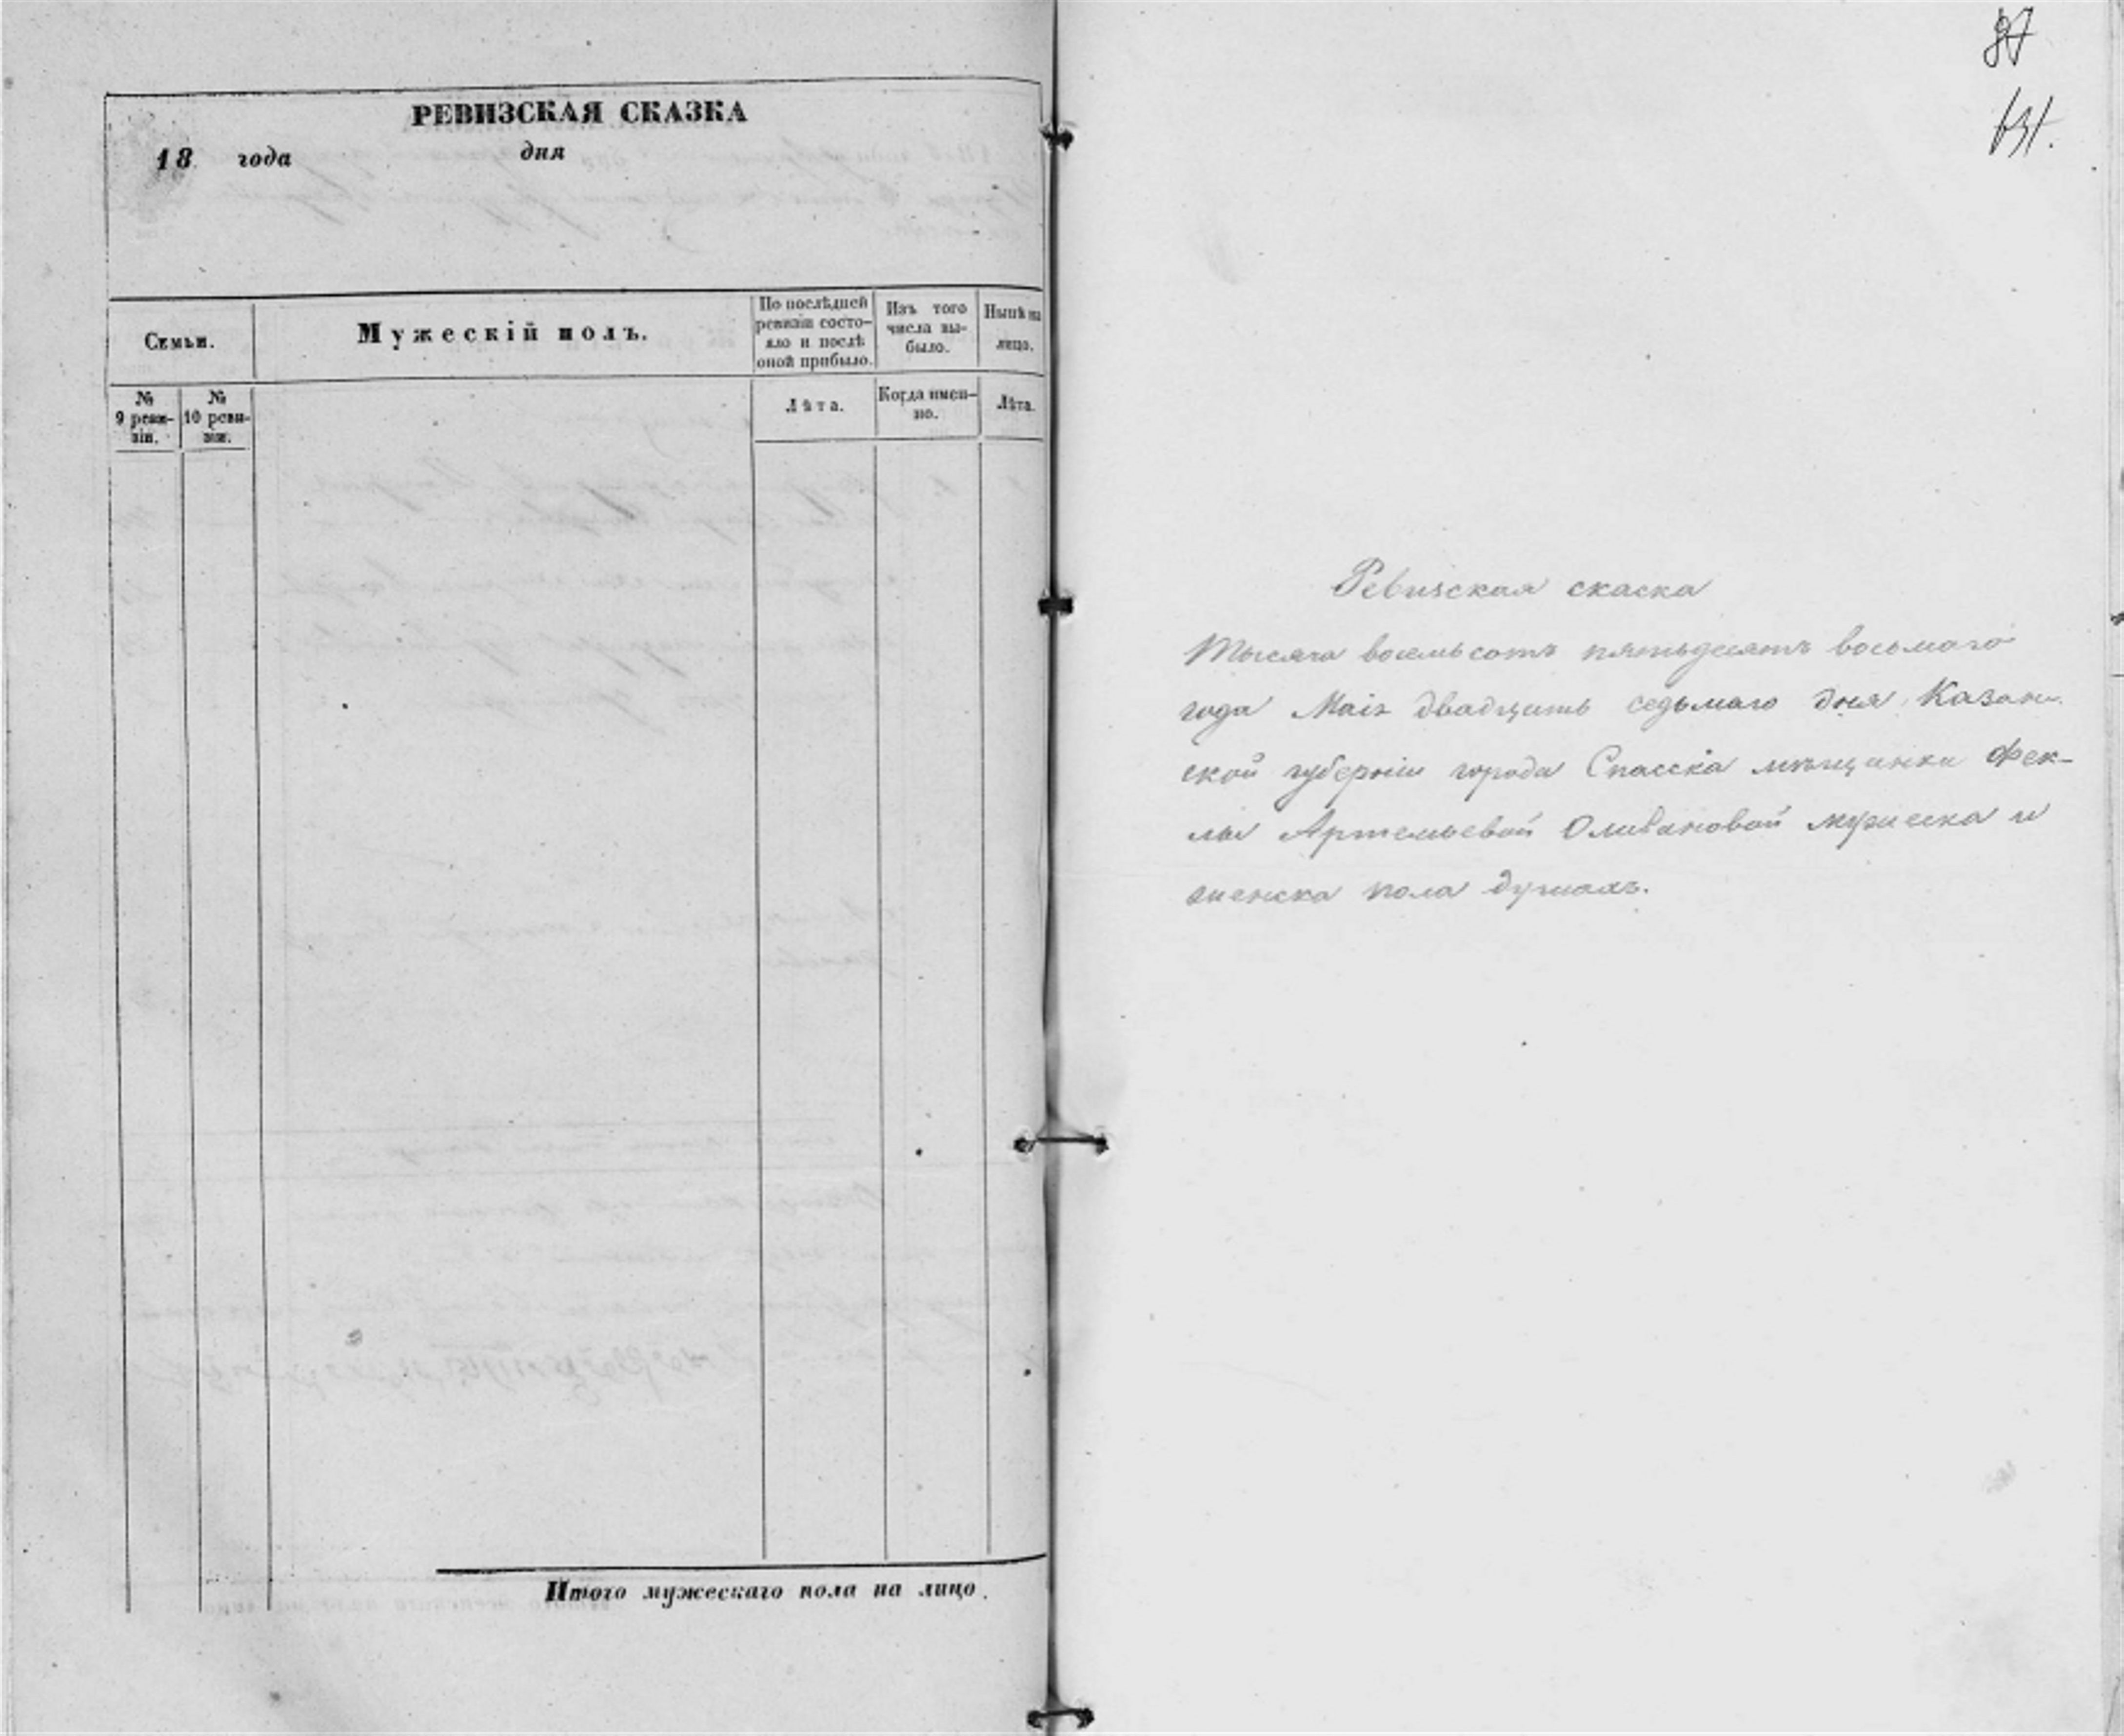 РЕВИЗСКАЯ СКАЗКА
18 года дня
Семьи.
Мужескій полъ.
По послѣдней
ревизіи состо-
яло и послѣ
оной прибыло.
Изъ того
числа вы-
было.
Нынѣ на
лицо.
№
9 реви-
зіи.
№
10 реви-
зіи.
Лѣта.
Когда имен-
но.
Лѣта.
Итого мужескаго пола на лицо.
87
131.
Ревизская скаска
Тысяча восемьсотъ пятьдесятъ восьмаго
года Маія двадцать седьмаго дня Казан-
ской губерніи города Спасска мѣщанки Фек-
лы Артемьевой Оливановой мужеска и
женска пола душахъ.